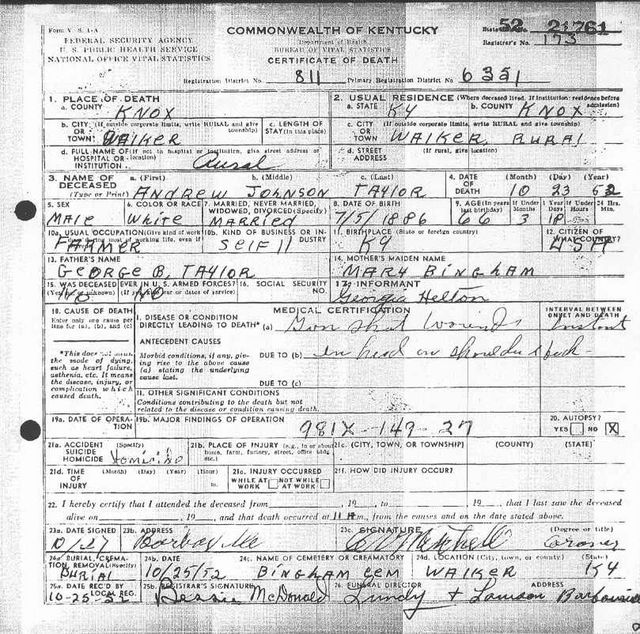 Form V. S. 1-A
FEDERAL SECURITY AGENCY
U. S. PUBLIC HEALTH SERVICE
NATIONAL OFFICE VITAL STATISTICS
COMMONWEALTH OF KENTUCKY
Department of Health
BUREAU OF VITAL STATISTICS
CERTIFICATE OF DEATH
52 21761
Registrar's No. 173
Registration District No. 811 Primary Registration District No. 6351
1. PLACE OF DEATH
a. COUNTY KNOX
2. USUAL RESIDENCE (Where deceased lived. If institution: residence before admission)
a. STATE KY b. COUNTY KNOX
b. CITY (If outside corporate limits, write RURAL and give township) OR TOWN WALKER
c. LENGTH OF STAY (in this place)
c. CITY (If outside corporate limits, write RURAL and give township) OR TOWN WALKER RURAL
d. FULL NAME OF (If not in hospital or institution, give street address or location) HOSPITAL OR INSTITUTION Rural
d. STREET ADDRESS (If rural, give location)
3. NAME OF DECEASED (Type or Print) a. (First) b. (Middle) c. (Last)
ANDREW JOHNSON TAYLOR
4. DATE OF DEATH (Month) (Day) (Year)
10 23 52
5. SEX Male
6. COLOR OR RACE White
7. MARRIED, NEVER MARRIED, WIDOWED, DIVORCED (Specify) MARRIED
8. DATE OF BIRTH 7/5/1886
9. AGE (In years last birthday) 66 3 18
10a. USUAL OCCUPATION (Give kind of work done during most of working life, even if retired) FARMER
10b. KIND OF BUSINESS OR INDUSTRY Self
11. BIRTHPLACE (State or foreign country) KY
12. CITIZEN OF WHAT COUNTRY?
13. FATHER'S NAME GEORGE B. TAYLOR
14. MOTHER'S MAIDEN NAME MARY BINGHAM
15. WAS DECEASED EVER IN U. S. ARMED FORCES? (Yes, no, or unknown) (If yes, give war or dates of service) NO NO
16. SOCIAL SECURITY NO.
17. INFORMANT Georgia Helton
18. CAUSE OF DEATH
Enter only one cause per line for (a), (b), and (c)
MEDICAL CERTIFICATION
INTERVAL BETWEEN ONSET AND DEATH
I. DISEASE OR CONDITION DIRECTLY LEADING TO DEATH* (a) Gun shot wounds Instant
*This does not mean the mode of dying, such as heart failure, asthenia, etc. It means the disease, injury, or complication which caused death.
ANTECEDENT CAUSES
Morbid conditions, if any, giving rise to the above cause (a) stating the underlying cause last.
DUE TO (b) in head in shoulder & back
DUE TO (c)
II. OTHER SIGNIFICANT CONDITIONS
Conditions contributing to the death but not related to the disease or condition causing death.
19a. DATE OF OPERATION
19b. MAJOR FINDINGS OF OPERATION
981X-149-27
20. AUTOPSY?
YES NO X
21a. ACCIDENT SUICIDE HOMICIDE (Specify) Homicide
21b. PLACE OF INJURY (e.g., in or about home, farm, factory, street, office bldg., etc.)
21c. (CITY, TOWN, OR TOWNSHIP) (COUNTY) (STATE)
21d. TIME OF INJURY (Month) (Day) (Year) (Hour)
21e. INJURY OCCURRED WHILE AT WORK NOT WHILE AT WORK
21f. HOW DID INJURY OCCUR?
22. I hereby certify that I attended the deceased from , 19 , to , 19 , that I last saw the deceased
alive on , 19 , and that death occurred at 11 m., from the causes and on the date stated above.
23a. DATE SIGNED
23b. ADDRESS Barbourville
23c. SIGNATURE Mitchell (Degree or title) Coroner
24a. BURIAL, CREMATION, REMOVAL (Specify) BURIAL
24b. DATE 10/25/52
24c. NAME OF CEMETERY OR CREMATORY BINGHAM CEM
24d. LOCATION (City, town, or county) (State) WALKER KY
25a. DATE REC'D BY LOCAL REG. 10-25-52
25b. REGISTRAR'S SIGNATURE Bessie McDonald
26. FUNERAL DIRECTOR ADDRESS
Lundy & Lawson Barbourville